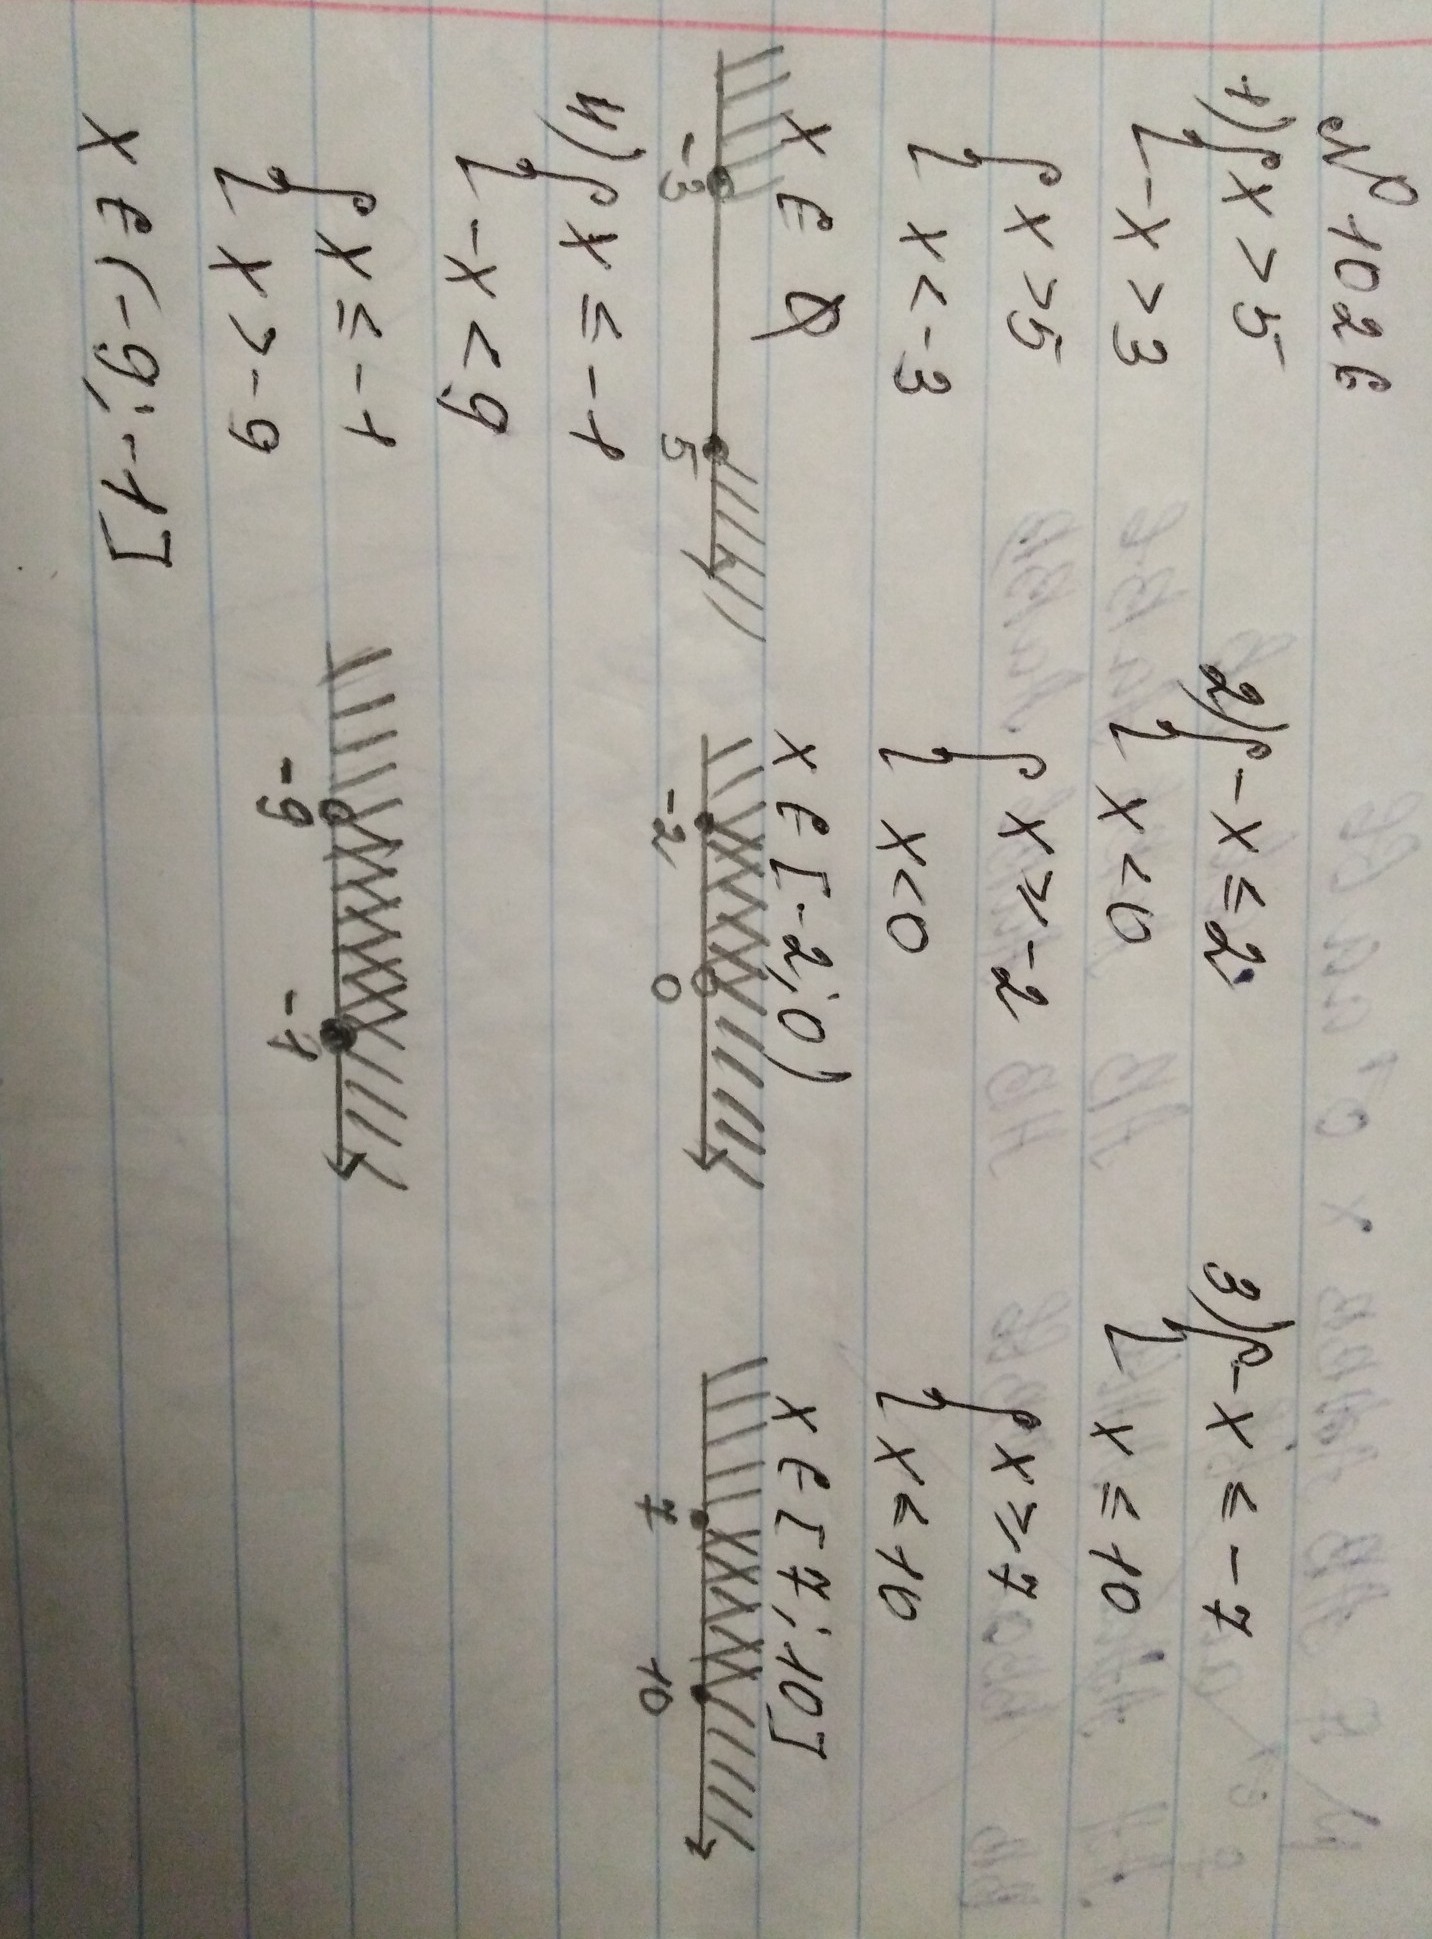 № 102б
1) { x > 5
{ -x > 3
{ x > 5
{ x < -3
x ∈ ∅
-3 5
2) { -x ≤ 2
{ x < 0
{ x ≥ -2
{ x < 0
x ∈ [-2; 0)
-2 0
3) { -x ≤ -7
{ x ≤ 10
{ x ≥ 7
{ x ≤ 10
x ∈ [7; 10]
7 10
4) { x ≤ -1
{ -x < 9
{ x ≤ -1
{ x > -9
x ∈ (-9; -1]
-9 -1